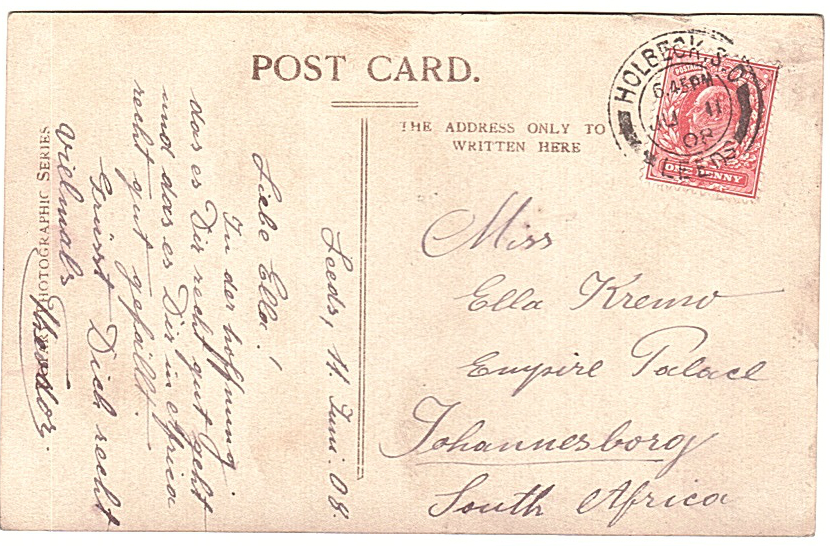 POST CARD.
THE ADDRESS ONLY TO
WRITTEN HERE
HOLBECK. S.O
6.45PM
JU 11
08
LEEDS
ONE PENNY
Miss
Ella Kremo
Empire Palace
Johannesborg
South Africa
Leeds, 11. Juni. 08.
Liebe Ella!
In der hoffnung
das es Dir recht gut geht
und das es Dir in Africa
recht gut gefällt.
Grüsst Dich recht
vielmals
Theodor.
PHOTOGRAPHIC SERIES